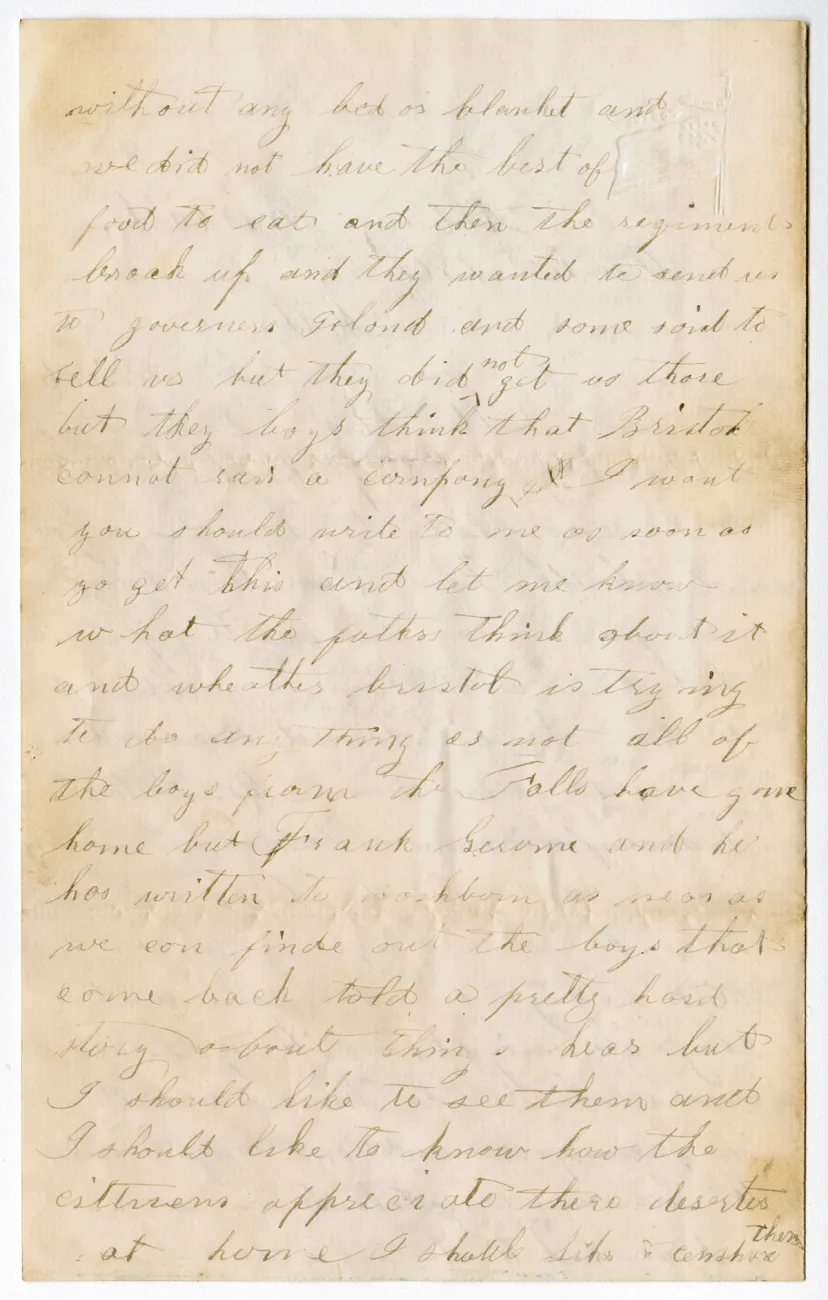 without any bed or blanket and
we did not have the best of
food to eat and then the regiments
brock up and they wanted to send us
to governers Islond and some said to
sell us but they did not get us those
but they boys think that Bristol
connot rais a company I want
you should write to me as soon as
yo get this and let me know
what the folkes think about it
and wheather bristol is trying
to do any thing as not all of
the boys from the Falls have gone
home but Frank Gerome and he
has written to washborn as near as
we can finde out the boys that
come back told a pretty hard
story aobout things hear but
I should like to see them and
I should like to know how the
cittizens appreciate there deserters
at home I should like
them